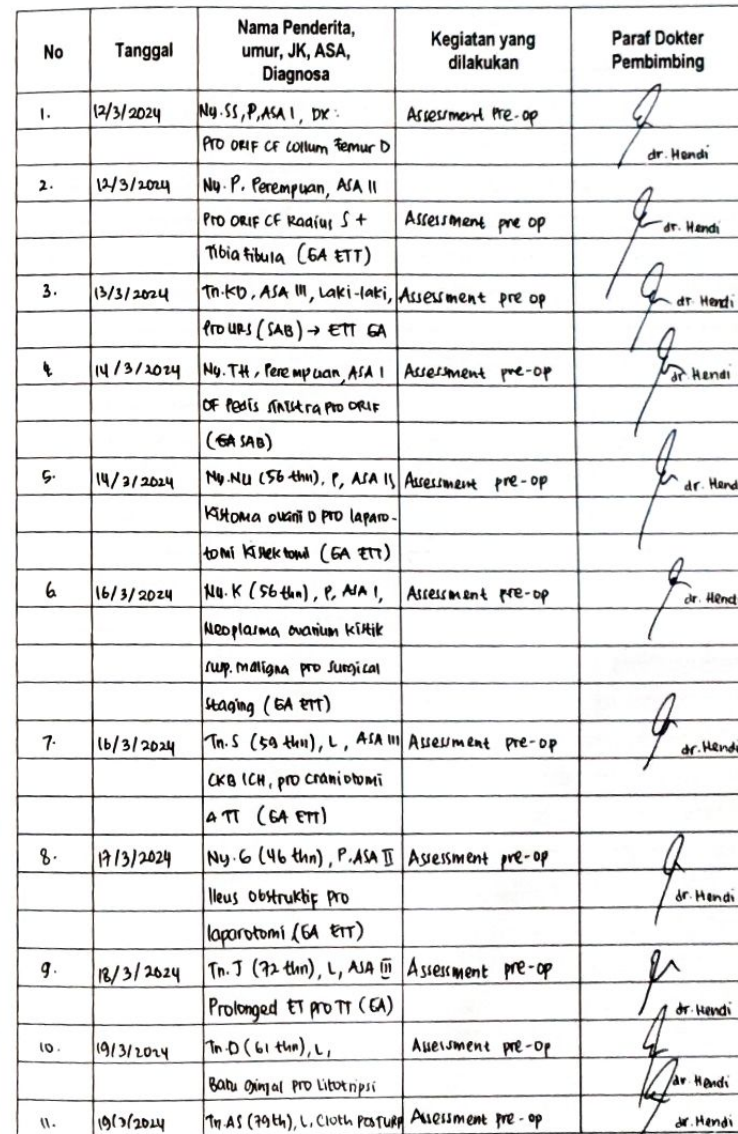 No Tanggal Nama Penderita, umur, JK, ASA, Diagnosa Kegiatan yang dilakukan Paraf Dokter Pembimbing
1. 12/3/2024 Ny. SS, P, ASA I, DX: Assessment Pre-op
Pro ORIF CF Collum Femur D dr. Hendi
2. 12/3/2024 Ny. P. Perempuan, ASA II
Pro ORIF CF Radius S + Assessment pre op dr. Hendi
Tibia fibula (GA ETT)
3. 13/3/2024 Tn. KD, ASA III, Laki-laki, Assessment pre op dr. Hendi
Pro URS (SAB) → ETT GA
4. 14/3/2024 Ny. TH, Perempuan, ASA I Assessment pre-op dr. Hendi
OF Pedis sinistra Pro ORIF
(GA SAB)
5. 14/3/2024 Ny. NU (56 thn), P, ASA II Assessment pre-op dr. Hendi
Kistoma ovarii D pro laparo-
tomi Kistektomi (GA ETT)
6. 16/3/2024 Ny. K (56 thn), P, ASA I, Assessment pre-op dr. Hendi
Neoplasma ovarium Kistik
susp. maligna pro surgical
Staging (GA ETT)
7. 16/3/2024 Tn. S (59 thn), L, ASA III Assessment pre-op dr. Hendi
CKB ICH, pro craniotomi
TT (GA ETT)
8. 17/3/2024 Ny. G (46 thn), P. ASA II Assessment pre-op
Ileus obstruktif pro dr. Hendi
laparotomi (GA ETT)
9. 18/3/2024 Tn. J (72 thn), L, ASA III Assessment pre-op
Prolonged ET pro TT (GA) dr. Hendi
10. 19/3/2024 Tn. D (61 thn), L, Assessment pre-op
Batu ginjal pro Litotripsi dr. Hendi
11. 19/3/2024 Tn. AS (79 th), L, Assessment pre-op dr. Hendi